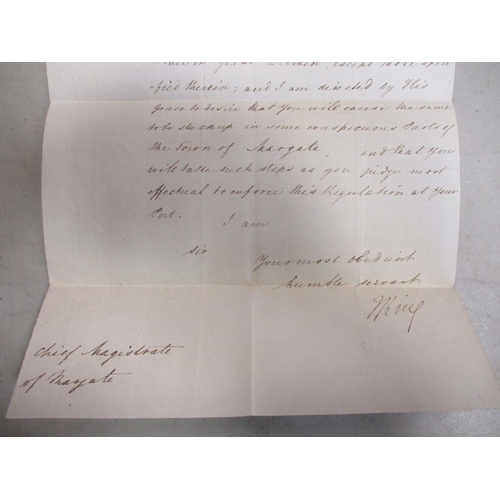 in Great Britain, except those speci
fied therein; and I am directed by His
Grace to desire that you will cause the same
to be stuck up in some conspicuous Parts of
the Town of Margate, and that you
will take such steps as you judge most
effectual to enforce this Regulation at your
Port.
I am
Sir
Your most obedient
humble servant
J King
Chief Magistrate
of Margate